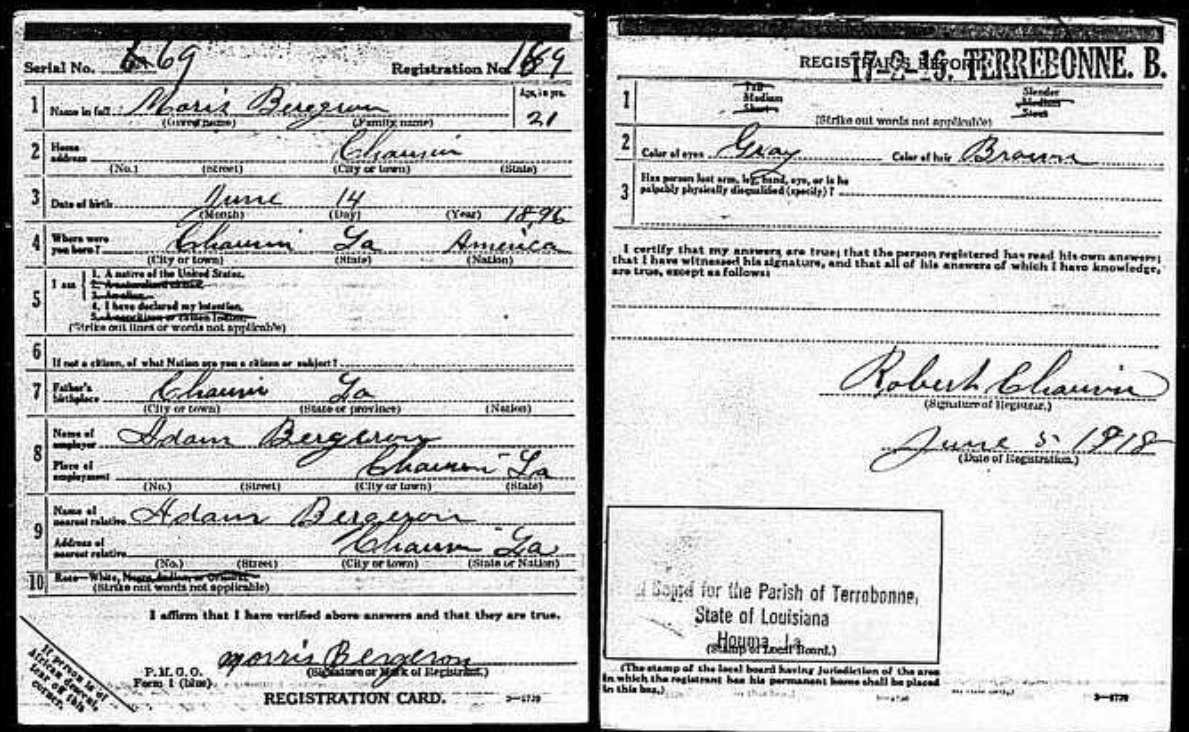 Serial No. 69 Registration No. 169
1 Name in full: Maris Beregron Age, in yrs. 21
(Given name) (Family name)
2 Home address Chauvin
(No.) (Street) (City or town) (State)
3 Date of birth June 14 1896
(Month) (Day) (Year)
4 Where were you born? Chauvin La America
(City or town) (State) (Nation)
5 I am
1. A native of the United States.
2. A naturalized citizen.
3. An alien.
4. I have declared my intention.
5. A noncitizen or citizen Indian.
(Strike out lines or words not applicable)
6 If not a citizen, of what Nation are you a citizen or subject?
7 Father's birthplace Chauvin La
(City or town) (State or province) (Nation)
8 Name of employer Adam Bergeron
Place of employment Chauvin La
(No.) (Street) (City or town) (State)
9 Name of nearest relative Adam Bergeron
Address of nearest relative Chauvin La
(No.) (Street) (City or town) (State or Nation)
10 Race—White, Negro, Indian, or Oriental
(Strike out words not applicable)
I affirm that I have verified above answers and that they are true.
morris Bergeron
P. M. G. O. (Signature or Mark of Registrant.)
Form 1 (blue)
REGISTRATION CARD.
If person is of
African descent,
tear off this
corner.
REGISTRAR'S REPORT 17-2-16. TERREBONNE. B.
1 Tall Slender
Medium Medium
Short Stout
(Strike out words not applicable)
2 Color of eyes Gray Color of hair Brown
3 Has person lost arm, leg, hand, eye, or is he
palpably physically disqualified (specify)?
I certify that my answers are true; that the person registered has read his own answers;
that I have witnessed his signature, and that all of his answers of which I have knowledge,
are true, except as follows:
Robert Chauvin
(Signature of Registrar.)
June 5 1918
(Date of Registration.)
Board for the Parish of Terrebonne,
State of Louisiana
Houma, La.
(Stamp of Local Board.)
(The stamp of the local board having jurisdiction of the area
in which the registrant has his permanent home shall be placed
in this box.)